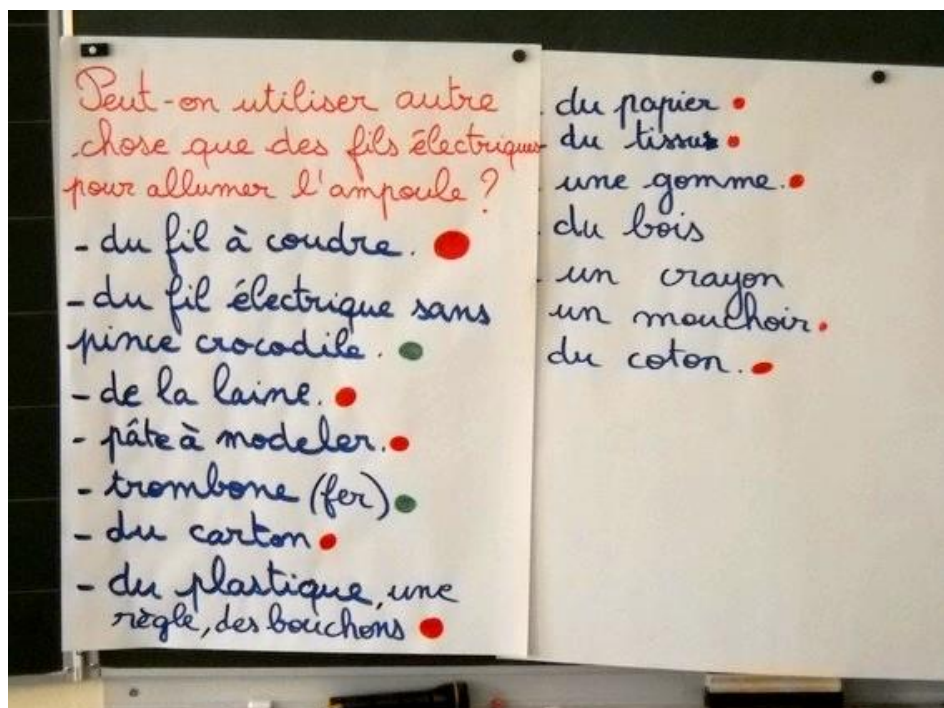 Peut-on utiliser autre
chose que des fils électriques
pour allumer l'ampoule ?
- du fil à coudre.
- du fil électrique sans
pince crocodile.
- de la laine.
- pâte à modeler.
- trombone (fer)
- du carton
- du plastique, une
règle, des bouchons
- du papier
- du tissu
- une gomme.
- du bois
- un crayon
un mouchoir.
du coton.